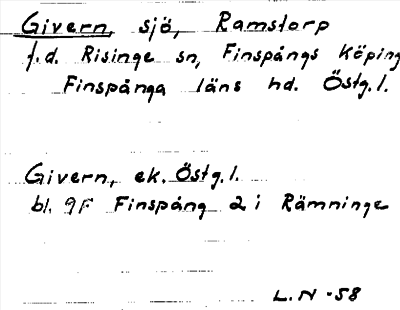 Givern, sjö, Ramstorp
f.d. Risinge sn, Finspångs köping
Finspånga läns hd. Östg.l.
Givern, ek. Östg.l.
bl. 9F Finspång 2 i Rämninge
L.N -58